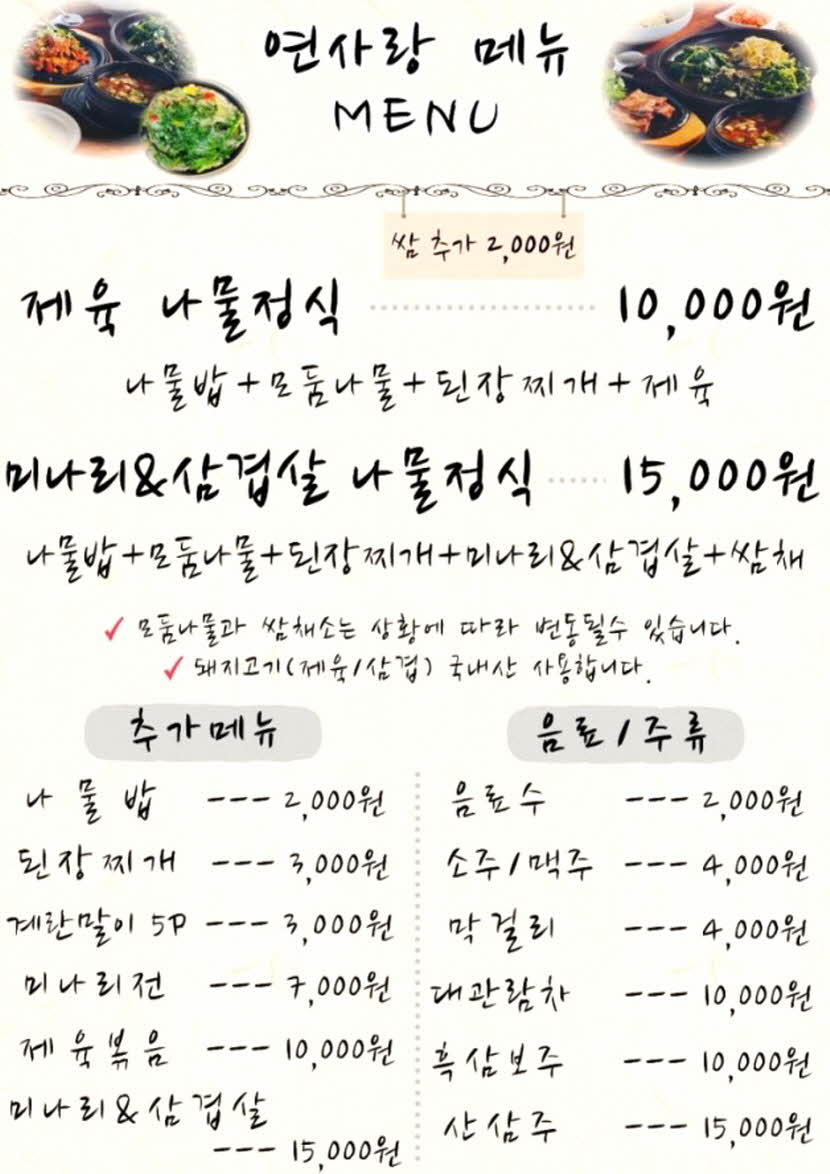 연사랑 메뉴
MENU
쌈 추가 2,000원
제육 나물정식 10,000원
나물밥+모둠나물+된장찌개+제육
미나리&삼겹살 나물정식 15,000원
나물밥+모둠나물+된장찌개+미나리&삼겹살+쌈채
✓ 모둠나물과 쌈채소는 상황에 따라 변동될수 있습니다.
✓ 돼지고기(제육/삼겹) 국내산 사용합니다.
추가메뉴
나물밥 --- 2,000원
된장찌개 --- 3,000원
계란말이 5P --- 3,000원
미나리전 --- 7,000원
제육볶음 --- 10,000원
미나리&삼겹살
--- 15,000원
음료/주류
음료수 --- 2,000원
소주/맥주 --- 4,000원
막걸리 --- 4,000원
대관람차 --- 10,000원
흑삼보주 --- 10,000원
산삼주 --- 15,000원